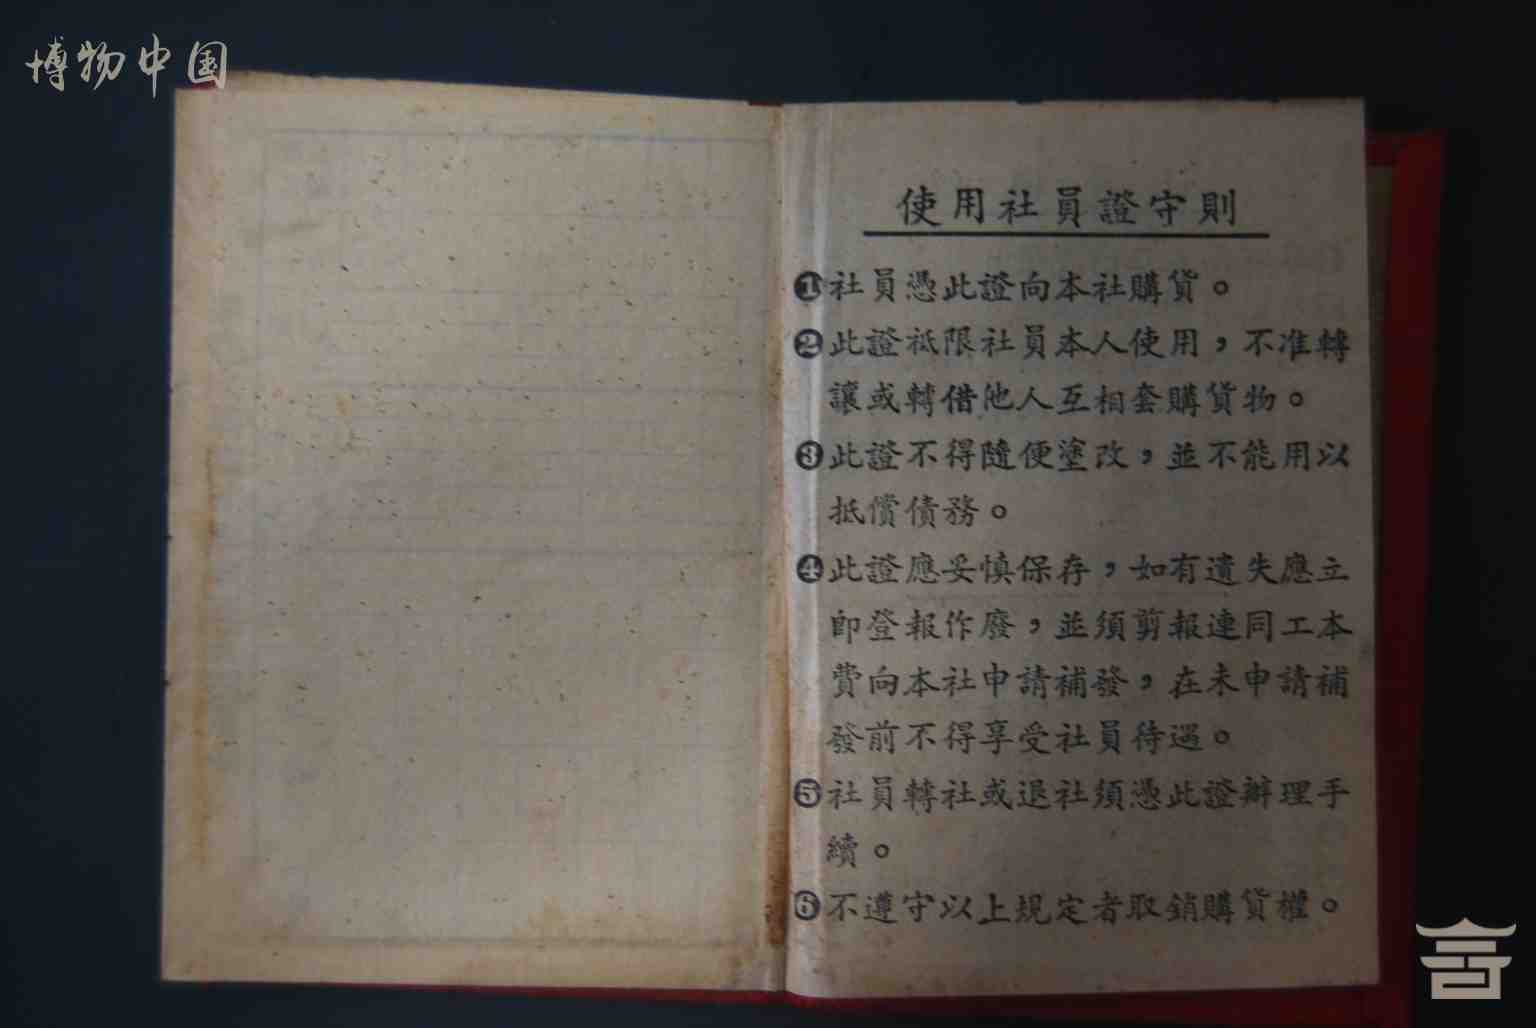 博物中国
使用社員證守則
❶社員憑此證向本社購貨。
❷此證祗限社員本人使用，不准轉
讓或轉借他人互相套購貨物。
❸此證不得隨便塗改，並不能用以
抵償債務。
❹此證應妥慎保存，如有遺失應立
即登報作廢，並須剪報連同工本
費向本社申請補發，在未申請補
發前不得享受社員待遇。
❺社員轉社或退社須憑此證辦理手
續。
❻不遵守以上規定者取銷購貨權。